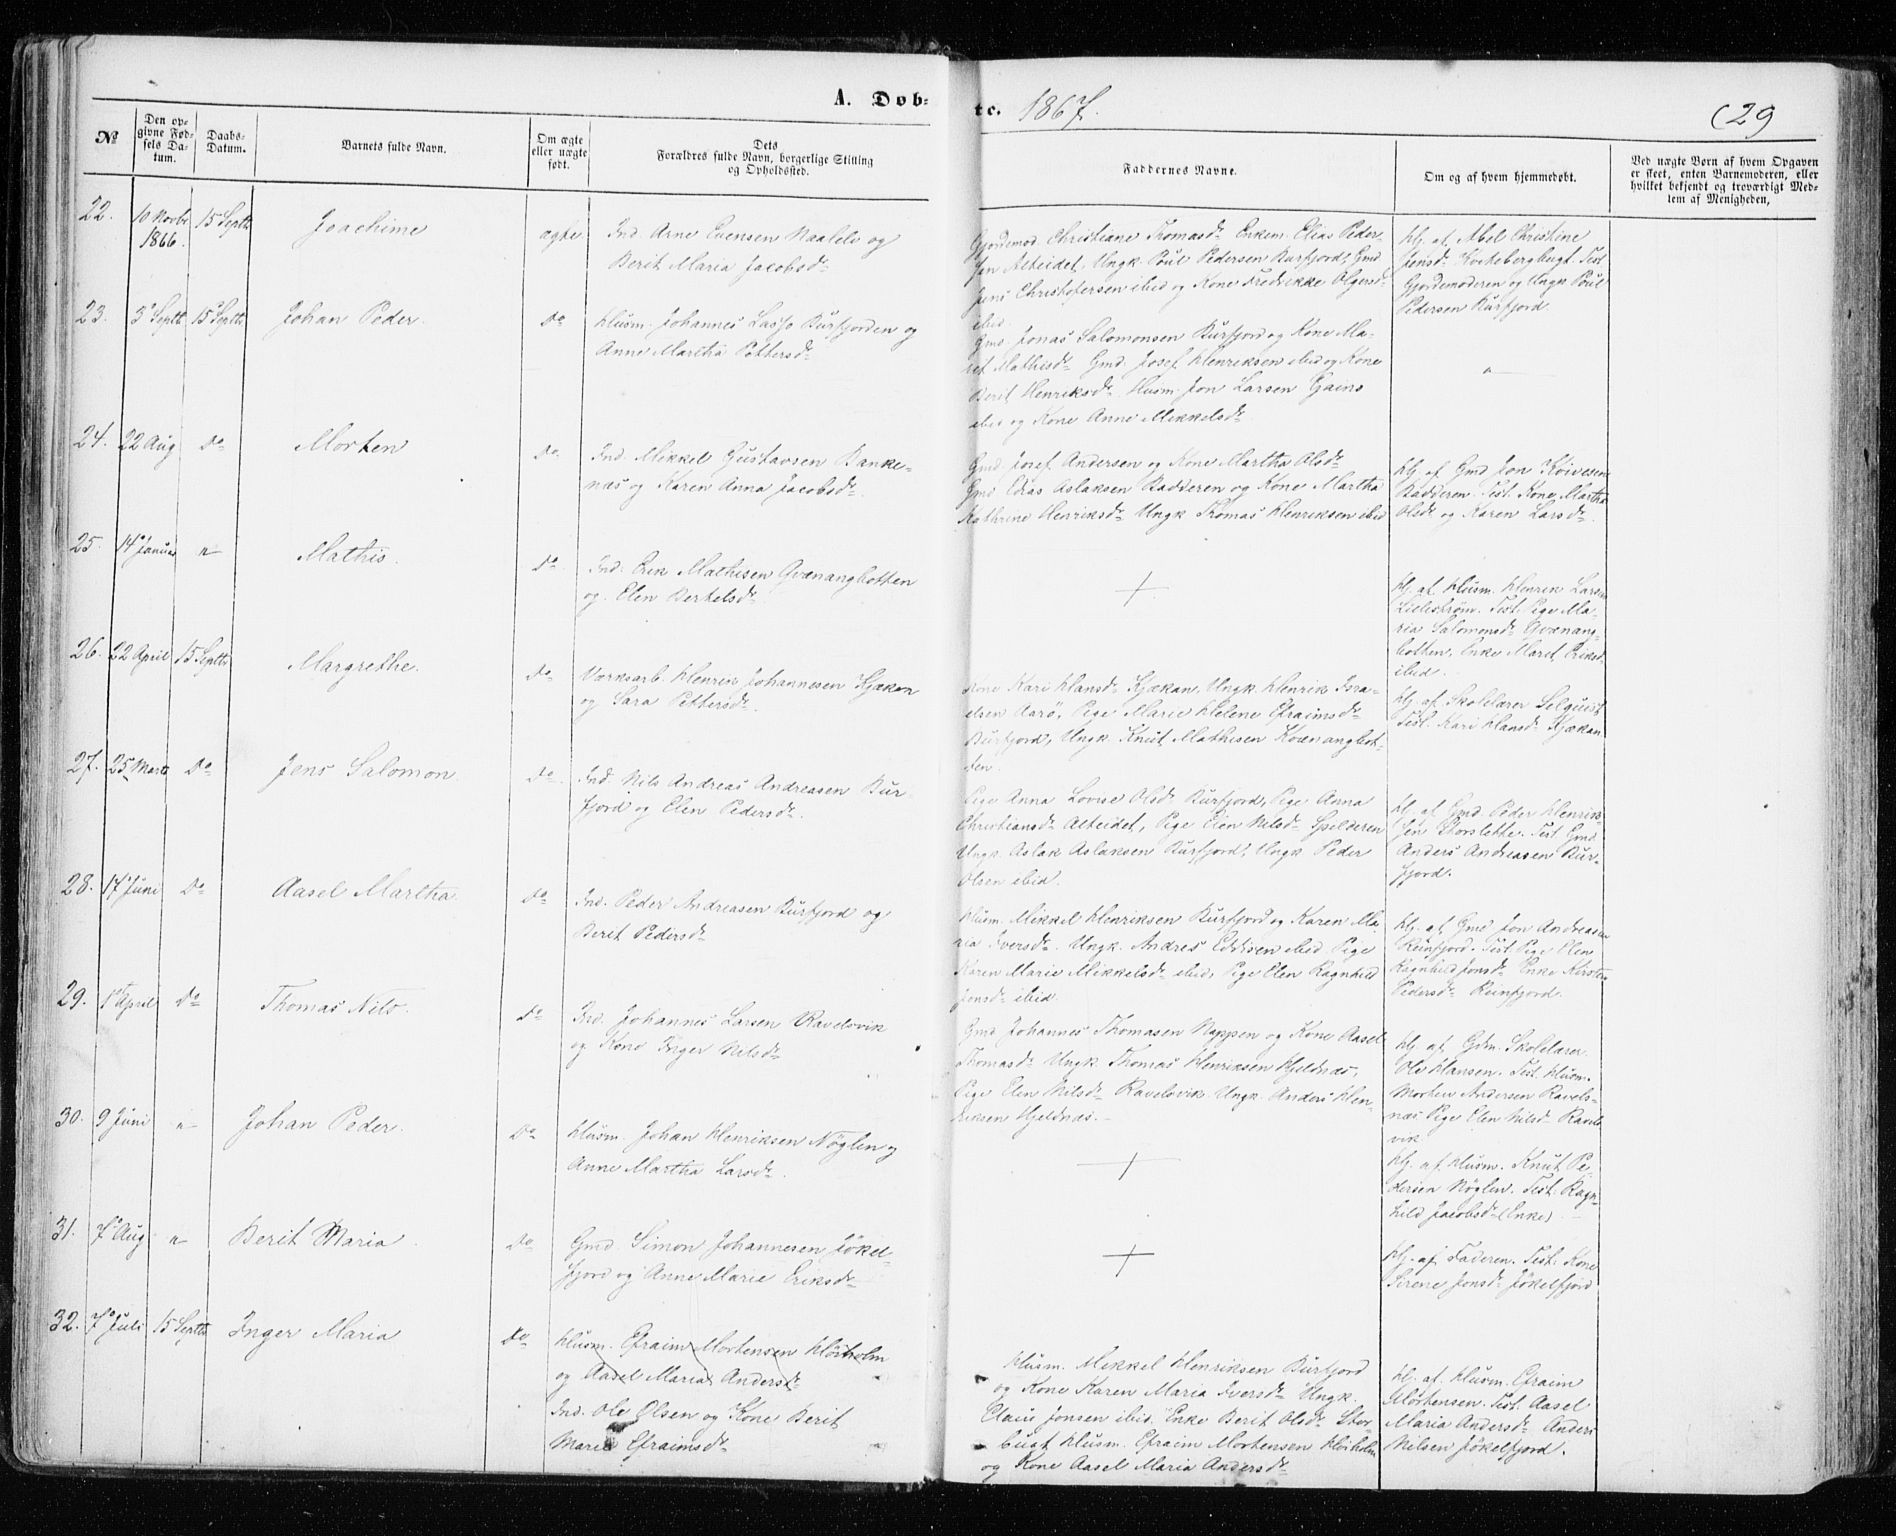 A. Døb-
te. 1867.
29
No
Den op-
givne Fød-
sels Da-
tum.
Daabs-
Datum.
Barnets fulde Navn.
Om ægte
eller uægte
født.
Dets
Forældres fulde Navn, borgerlige Stilling
og Opholdssted.
Faddernes Navne.
Om og af hvem hjemmedøbt.
Ved uægte Børn af hvem Opgaven
er skeet, enten Barnemoderen, eller
hvilket bekjendt og troværdigt Med-
lem af Menigheden,
22.
10 Novbr
1866.
15 Septb
Joachime
ægte
Ind. Arne Evensen Naalelv og
Berit Maria Jacobsdr
Gjordemod. Christiane Thomasdr Enkem. Elias Peder-
sen Alteidet, Ungk. Poul Pedersen Burfjord, Gmd
Jens Christofersen ibid og Kone Fredrikke Olgersdr
ibid.
Hj. af Abel Christine
Jensdr Kvitebergbugt. Test.
Gjordemoderen og Ungk Poul
Pedersen Burfjord
23.
3 Septb
15 Septb
Johan Peder.
Do
Husm. Johannes Lasso Burfjorden og
Anne Martha Pettersdr
Gmd. Jonas Salomonsen Burfjord og Kone Ma-
ret Mathisdr Gmd. Josef Henriksen ibid og Kone
Berit Henriksdr. Husm. Jon Larsen Gains
ibid og Kone Anne Mikkelsdr
"
24.
22 Aug
Do
Morten
Do
Ind. Mikkel Gustavsen Banke-
næs og Karen Anna Jacobsdr.
Gmd. Josef Andersen og Kone Martha Olsdr
Gmd Edias Aslaksen Badderen og Kone Martha
Kathrine Henriksdr Ungk Thomas Henriksen ibid
Hj. af Gmd Jon Koivesen
Badderen. Test. Kone Martha
Olsdr og Karen Larsdr.
25.
14 Januar
"
Mathis.
Do.
Ind. Erik Mathisen Qvænangbotten
og Elen Bertelsdr
+
Hj. af Husm. Henrik Larsen
Lillestrøm. Test. Pige Ma-
ria Salomonsdr Qvænang-
botten, Enke Maret Eriksdr
ibid.
26.
22 April
15 Septb
Margrethe.
Do
Værksarb. Henrik Johannesen Kjækan
og Sara Pettersdr.
Kone Kari Hansdr Kjækan, Ungk. Henrik Isra-
elsen Aarø, Pige Marie Helene Efraimsdr
Burfjord, Ungk. Knut Mathisen Kvænangbot-
ten.
Hj. af Skolelærer Selquist
Test. Kari Hansdr Kjækan
27.
25 Marts
Do
Jens Salomon
Do
Ind. Nils Andreas Andreasen Bur-
fjord og Elen Pedersdr.
Pige Anna Lovise Olsdr Burfjord, Pige Anna
Christiansdr Alteidet, Pige Elen Nilsdr Spilderen
Ungk. Aslak Aslaksen Burfjord, Ungk Peder
Olsen ibid.
Hj. af Gmd Peder Henrik-
sen Storslette. Test Gmd.
Anders Andreasen Bur-
fjord.
28.
17 Juni
Do
Aasel Martha.
Do
Ind. Peder Andreasen Burfjord og
Berit Pedersdr
Husm. Mikkel Henriksen Burfjord og Karen Ma-
ria Iversdr. Ungk. Andres Eddisen ibid Pige
Karen Marie Mikkelsdr ibid, Pige Elen Ragnhild
Jonsdr ibid.
Hj. af Gmd Jon Andreasen
Reinfjord. Test Pige Elen
Ragnhild Jonsdr Enke Kirsten
Pedersdr Reinfjord.
29.
1 April
Do
Thomas Nils.
Do
Ind. Johannes Larsen Ravelsvik
og Kone Inger Nilsdr
Gmd Johannes Thomasen Nappen og Kone Aasel
Thomasdr Ungk Thomas Henriksen Hjeldnæs,
Pige Elen Nilsdr Ravelsvik. Ungk. Anders Hen-
riksen Hjeldnæs.
Hj. af. Gdm. Skolelærer
Ole Hansen. Test. Husm.
Morten Andersen Ravels-
næs Pige Elen Nilsdr Ravels-
vik
30.
9 Juni
"
Johan Peder.
Do
Husm. Johan Henriksen Nøglen og
Anne Martha Larsdr.
+
Hj. af Husm. Knut Pe-
dersen Nøglen. Test: Ragn-
hild Jacobsdr (Enke).
31.
7 Aug
"
Berit Maria
Do
Gmd. Simon Johannesen Jøkel-
fjord og Anne Marie Eriksdr
+
Hj. af Faderen. Test: Kone
Sirene Jonsdr Jøkelfjord
32.
7 Juli
15 Septb
Inger Maria
Do
Husm. Efraim Mortensen Høiholm
og Aasel Maria Andersdr
Ind. Ole Olsen og Kone Berit
Marie Efraimsdr
Husm. Mikkel Henriksen Burfjord
og Kone Karen Maria Iversdr Ungk.
Claus Jonsen ibid. Enke Berit Olsdr Stor-
bugt Husm. Efraim Mortensen Høiholm
og Kone Aasel Maria Andersdr
Hj. af Husm. Efraim
Mortensen. Test. Aasel
Maria Andersdr Anders
Nilsen Jøkelfjord.